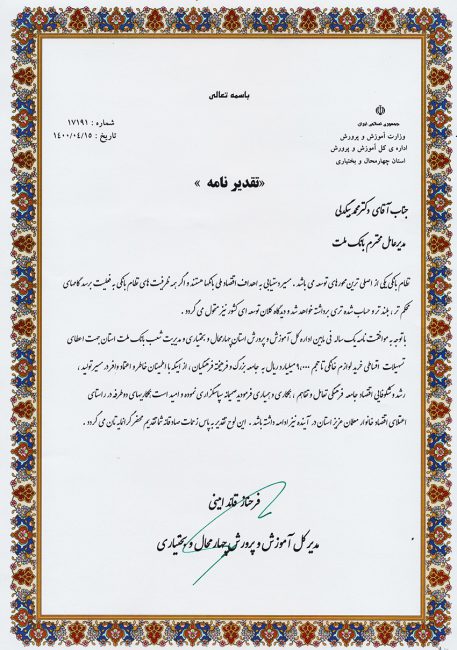 باسمه تعالی
جمهوری اسلامی ایران
وزارت آموزش و پرورش
اداره ی کل آموزش و پرورش
استان چهارمحال و بختیاری
شماره : ۱۷۱۹۱
تاریخ : ۱۴۰۰/۰۴/۱۵
«تقدیر نامه »
جناب آقای دکتر محمد بیگدلی
مدیرعامل محترم بانک ملت
نظام بانکی یکی از اصلی ترین محورهای توسعه می باشد . مسیر دستیابی به اهداف اقتصاد ملی بانکها هستند و اگر همه ظرفیت های نظام بانکی به فعلیت برسد گامهای
محکم تر ، بلندتر و حساب شده تری برداشته خواهد شد و دیدگاه کلان توسعه ای کشور نیز متحول می گردد .
با توجه به موافقت نامه یک ساله فی مابین اداره کل آموزش و پرورش استان چهارمحال و بختیاری و مدیریت شعب بانک ملت استان جهت اعطای
تسهیلات اقساطی خرید لوازم خانگی تا حجم ۹،۰۰۰میلیارد ریال به جامعه بزرگ و فرهیخته فرهنگیان ، از اینکه با اطمینان خاطر و اعتماد وافر در مسیر تولید ،
رشد و شکوفایی اقتصاد جامعه فرهنگی تعامل و تفاهم ، همکاری و همیاری فرمودید صمیمانه سپاسگزاری نموده و امید است همکاریهای دوطرفه در راستای
اعتلای اقتصاد خانوار معلمان عزیز استان در آینده نیز ادامه داشته باشد . این لوح تقدیر به پاس زحمات صادقانه شما تقدیم محضر گرانمایه تان می گردد .
فرحناز قائد امینی
مدیر کل آموزش و پرورش چهارمحال و بختیاری